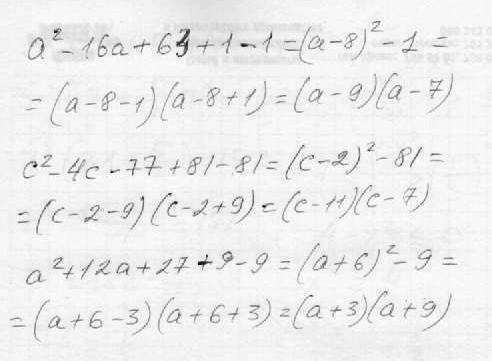 a² - 16a + 63 + 1 - 1 = (a - 8)² - 1 =
= (a - 8 - 1)(a - 8 + 1) = (a - 9)(a - 7)
c² - 4c - 77 + 81 - 81 = (c - 2)² - 81 =
= (c - 2 - 9)(c - 2 + 9) = (c - 11)(c - 7)
a² + 12a + 27 + 9 - 9 = (a + 6)² - 9 =
= (a + 6 - 3)(a + 6 + 3) = (a + 3)(a + 9)